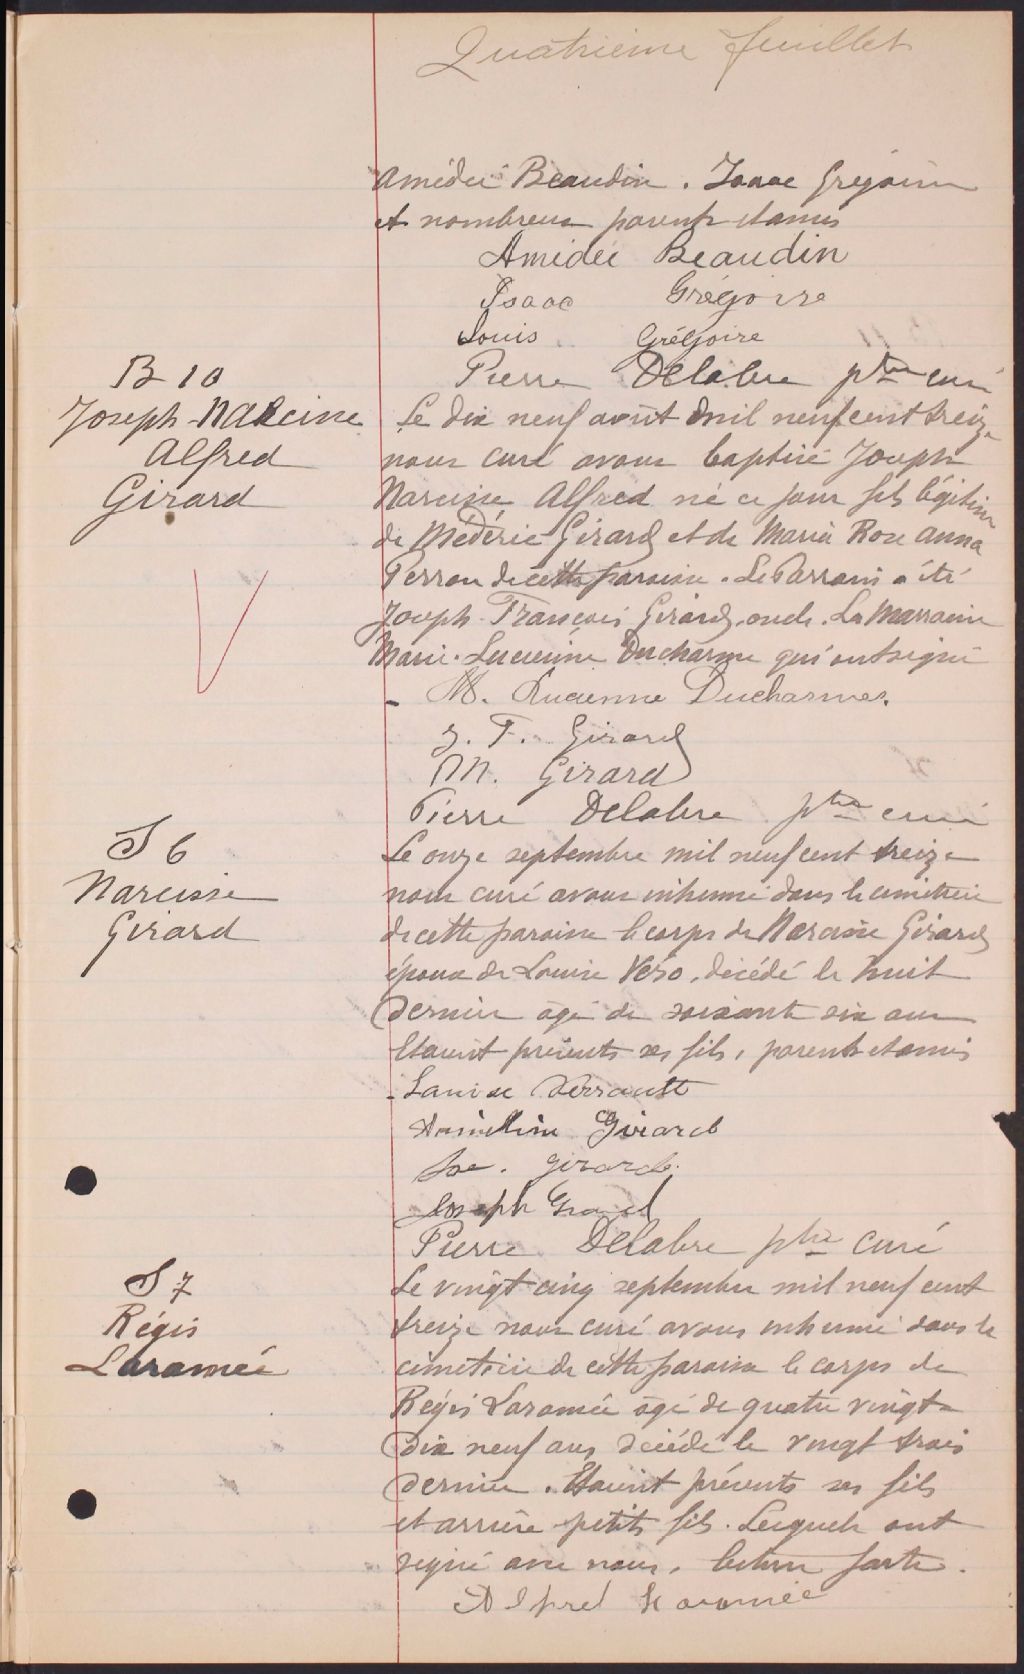 Quatrième feuillet
Amédée Beaudin. Isaac Grégoire
et nombreux parents et amis
Amédée Beaudin
Isaac Grégoire
Louis Grégoire
Pierre Delabre ptre curé
B 10
Joseph-Narcisse
Alfred
Girard
Le dix neuf août mil neuf cent treize
nous curé avons baptisé Joseph
Narcisse Alfred né ce jour fils légitime
de Médéric Girard et de Marie Rose Anna
Perron de cette paroisse. Le Parrain a été
Joseph-François Girard, oncle. La Marraine
Marie-Lucienne Ducharme qui ont signé
- M. Lucienne Ducharme.
J. F. Girard
M. Girard
Pierre Delabre ptre curé
S 6
Narcisse
Girard
Le onze septembre mil neuf cent treize
nous curé avons inhumé dans le cimetière
de cette paroisse le corps de Narcisse Girard
époux de Louise Véro, décédé le huit
dernier âgé de soixante six ans
Etaient présents ses fils, parents et amis
Girard
Girard
Joseph
Pierre Delabre ptre curé
S 7
Régis
Laramée
Le vingt cinq septembre mil neuf cent
treize nous curé avons inhumé dans le
cimetière de cette paroisse le corps de
Régis Laramée âgé de quatre vingt
dix neuf ans décédé le vingt trois
dernier. Etaient présents ses fils
et arrière petits fils. Lesquels ont
signé avec nous. Lecture faite.
Laramée